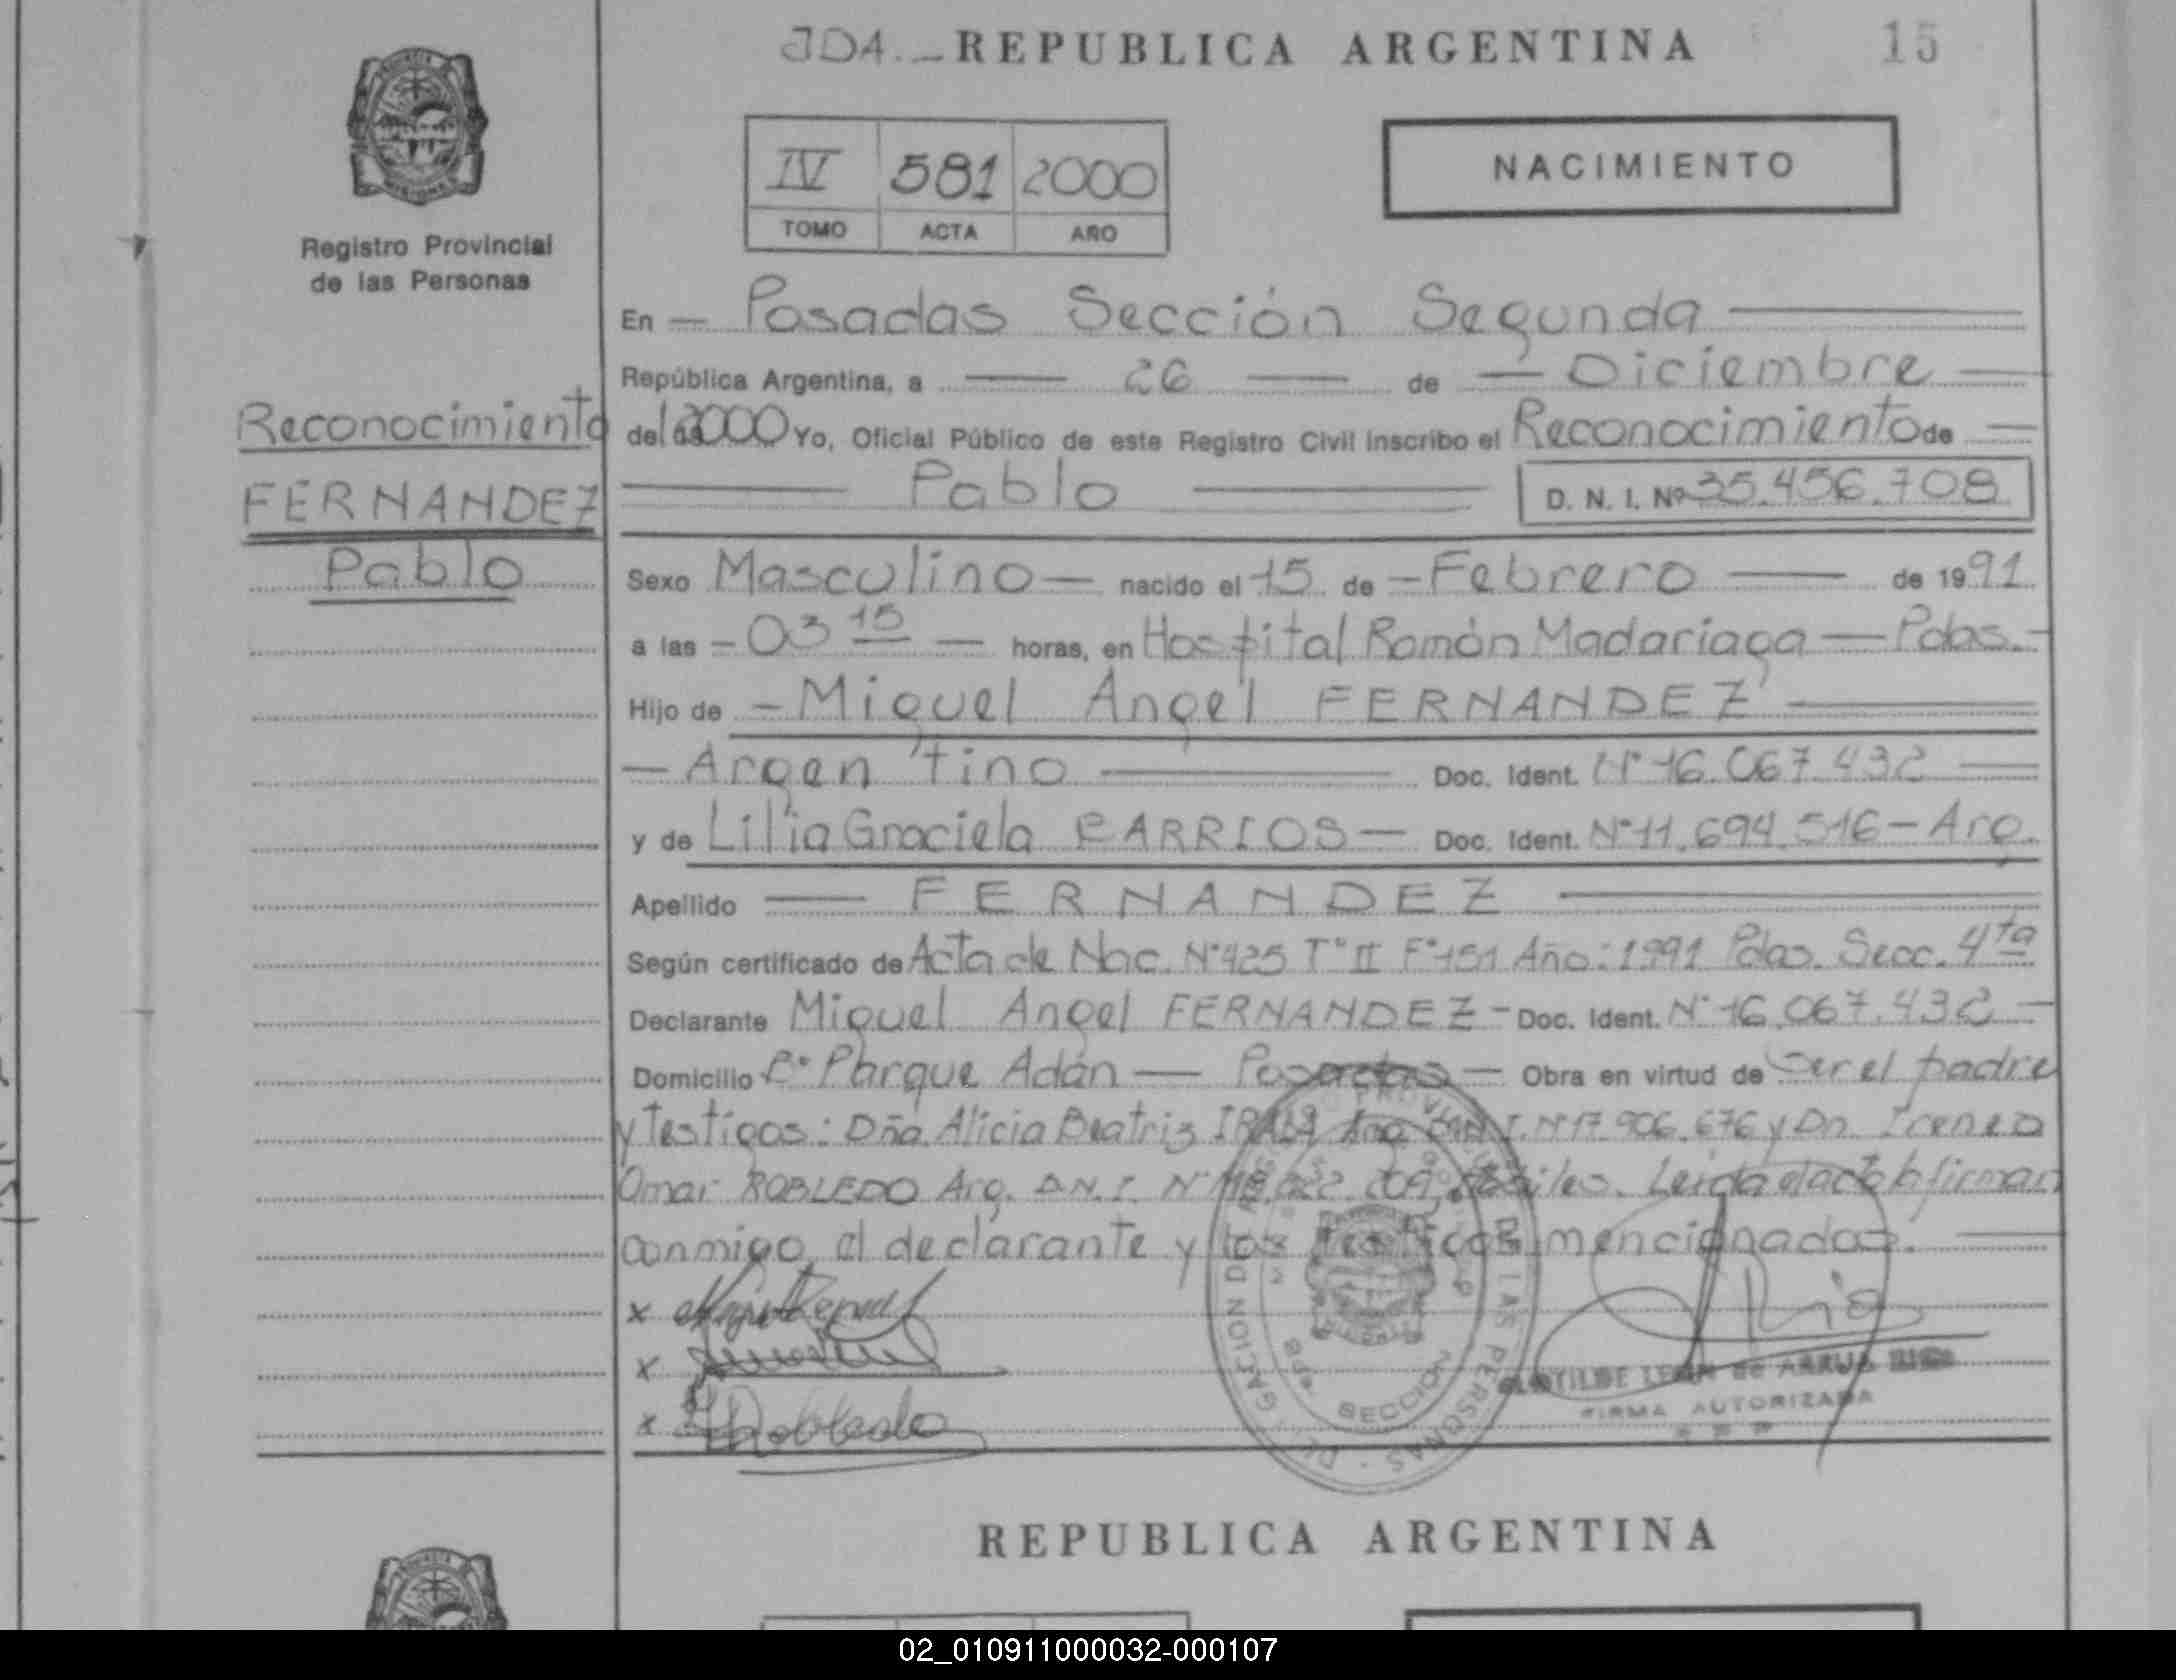 JDA.- REPUBLICA ARGENTINA 15
IV 581 2000
TOMO ACTA AÑO
NACIMIENTO
Registro Provincial
de las Personas
En — Posadas Sección Segunda
República Argentina, a — 26 — de — Diciembre —
Reconocimiento
del 2000 Yo, Oficial Público de este Registro Civil inscribo el Reconocimiento de —
FERNANDEZ
Pablo D. N. I. Nº 35.456.708
Pablo
Sexo Masculino — nacido el 15 de — Febrero — de 1991
a las — 03 15 — horas, en Hospital Ramón Madariaga — Pdas.-
Hijo de — Miguel Angel FERNANDEZ
— Argentino — Doc. Ident. Nº 16.067.432 —
y de Lilia Graciela BARRIOS — Doc. Ident. Nº 11.694.516 - Arg.
Apellido — FERNANDEZ
Según certificado de Acta de Nac. Nº 425 Tº II Fº 151 Año: 1991 Pdas. Secc. 4ta
Declarante Miguel Angel FERNANDEZ - Doc. Ident. Nº 16.067.432 —
Domicilio Bº Parque Adán — Posadas — Obra en virtud de Ser el padre
y testigos: Dña. Alicia Beatriz IRALA Arg. D.N.I. Nº 17.906.676 y Dn. Ireneo
Omar ROBLEDO Arg. D.N.I. Nº hábiles. Leida el acta la firman
conmigo, el declarante y los testigos mencionados.
x
x
x Robledo
SECCION
LEON de ARRUA
FIRMA AUTORIZADA
REPUBLICA ARGENTINA
02_010911000032-000107